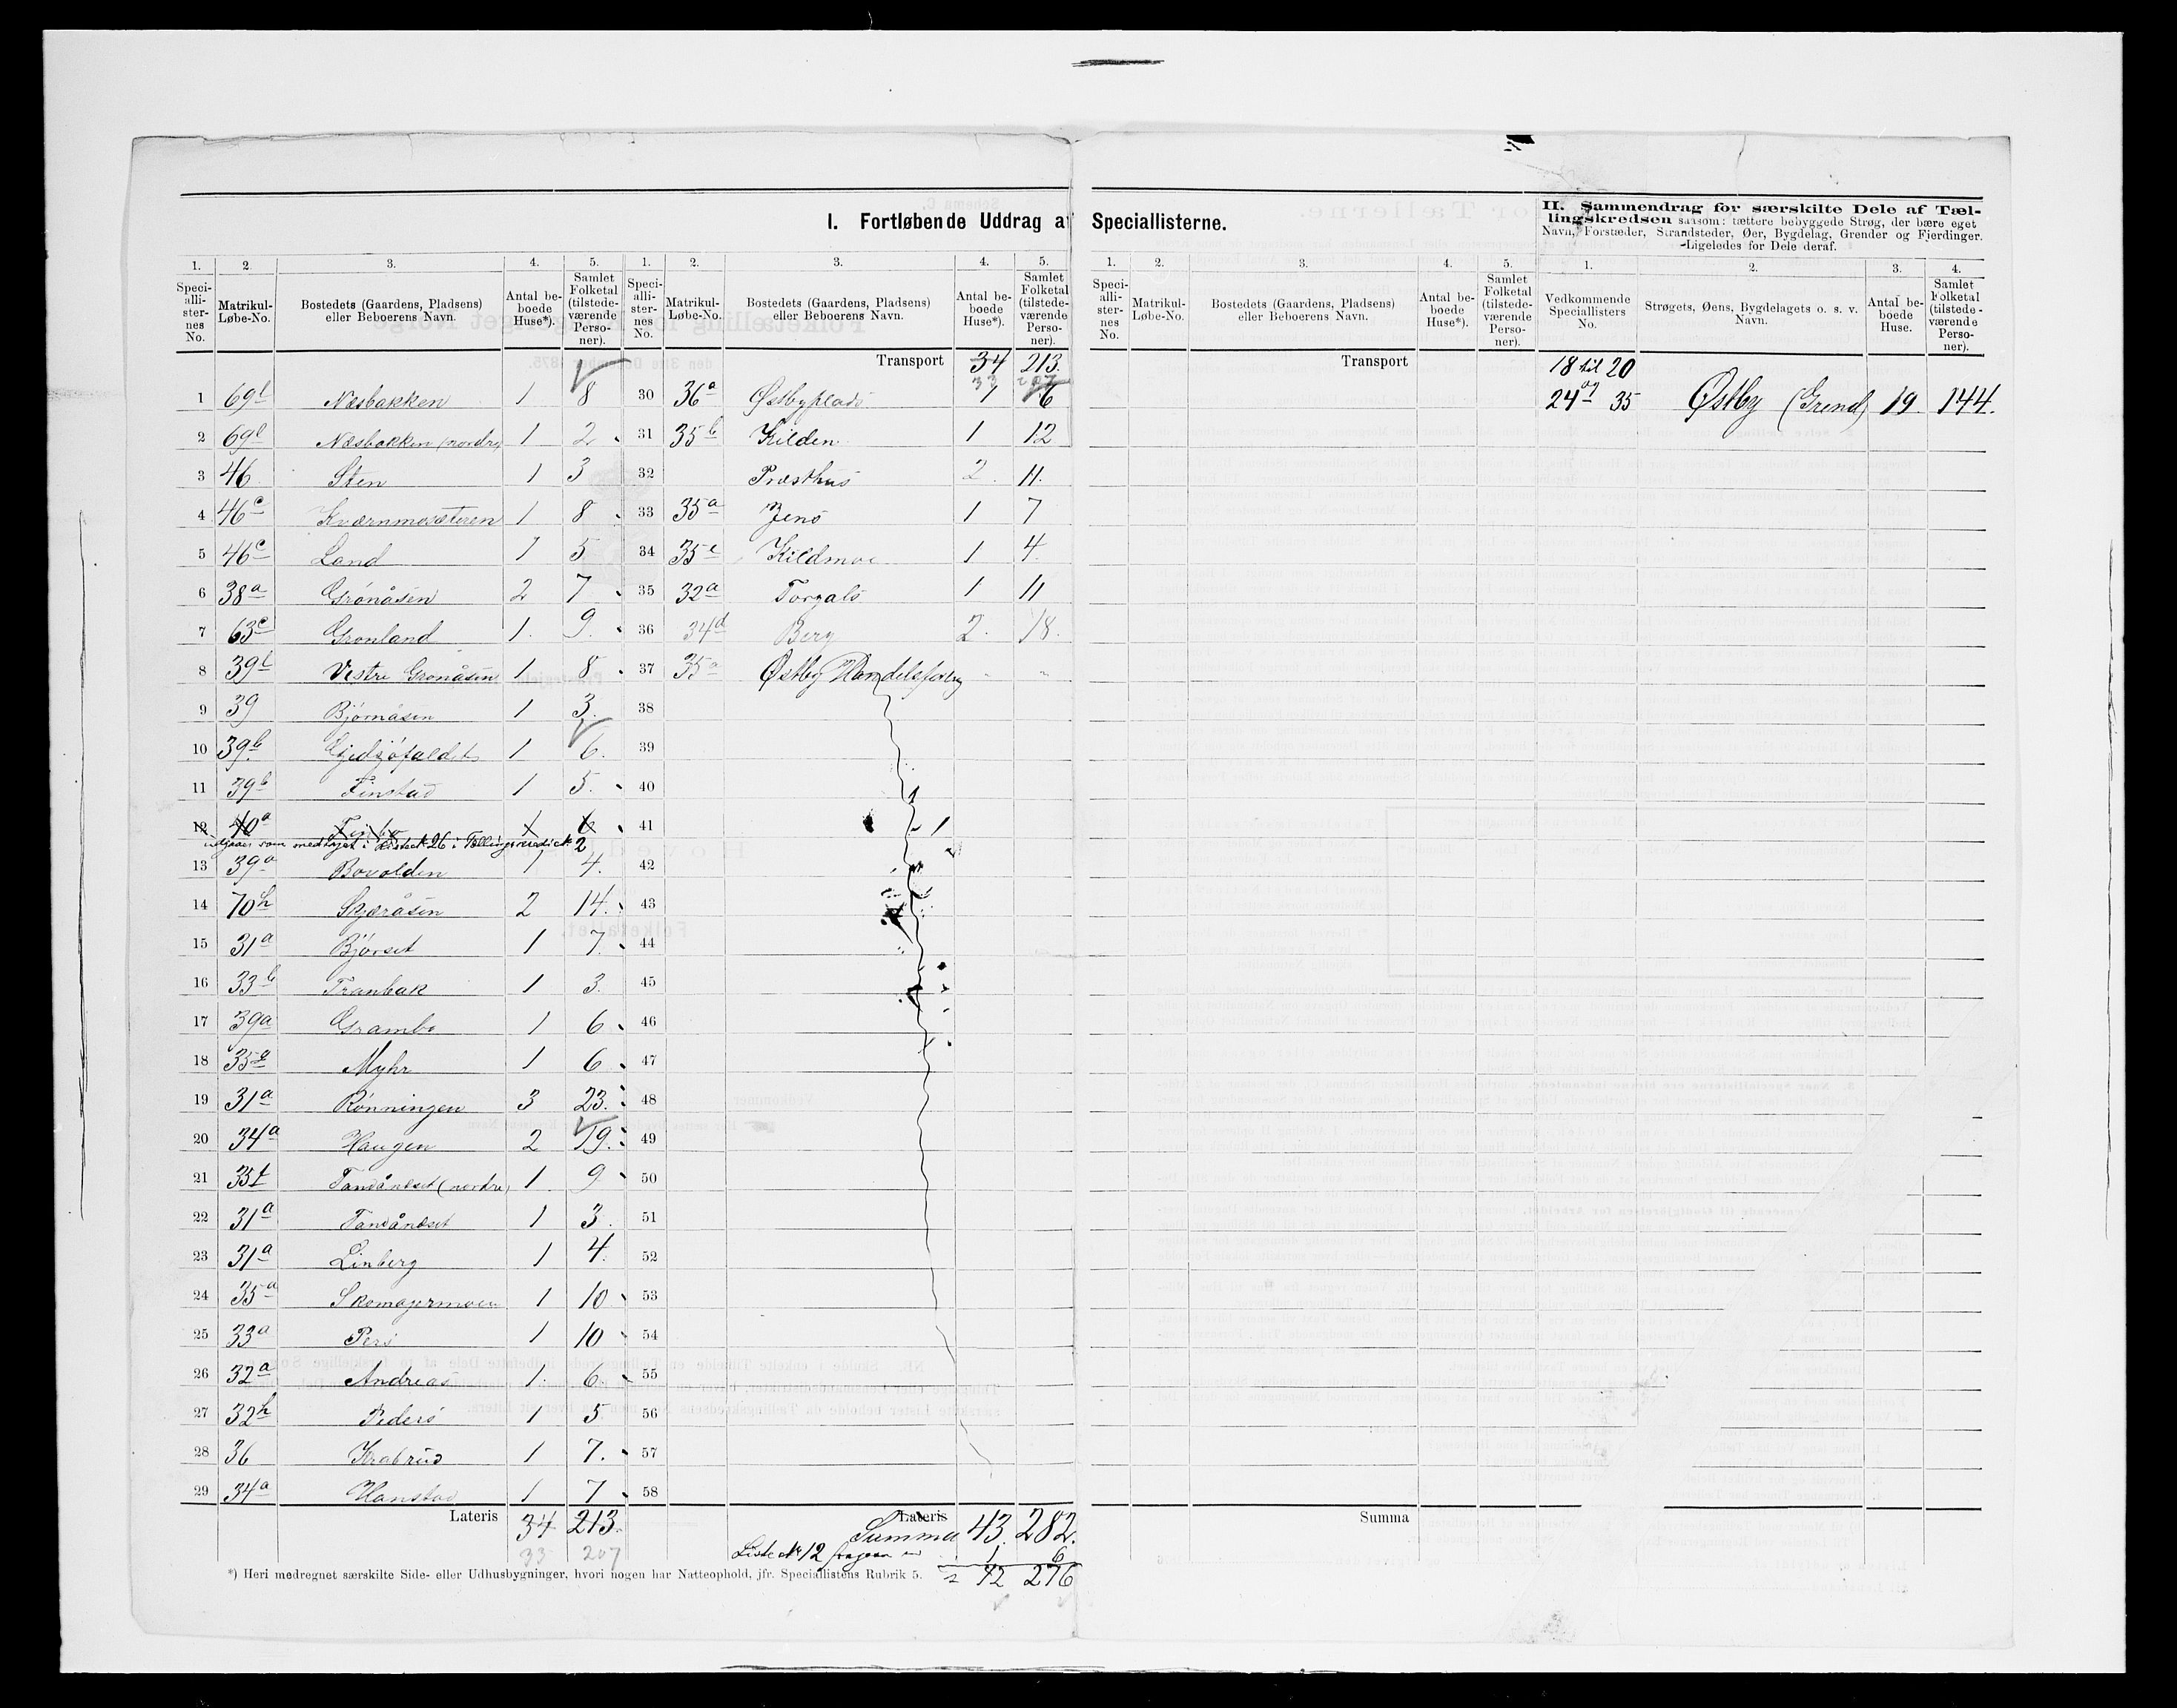 I. Fortløbende Uddrag af Speciallisterne.
II. Sammendrag for særskilte Dele af Tæl-
lingskredsen saasom: tættere bebyggede Strøg, der bære eget
Navn, Forstæder, Strandsteder, Øer, Bygdelag, Grender og Fjerdinger.
Ligeledes for Dele deraf.
1. 2. 3. 4. 5. 1. 2. 3. 4. 5. 1. 2. 3. 4. 5. 1. 2. 3. 4.
Speci-alli-ster-nes No. Matrikul-Løbe-No. Bostedets (Gaardens, Pladsens) eller Beboerens Navn. Antal be-boede Huse*). Samlet Folketal (tilstede-værende Perso-ner).
Speci-alli-ster-nes No. Matrikul-Løbe-No. Bostedets (Gaardens, Pladsens) eller Beboerens Navn. Antal be-boede Huse*). Samlet Folketal (tilstede-værende Perso-ner).
Speci-alli-ster-nes No. Matrikul-Løbe-No. Bostedets (Gaardens, Pladsens) eller Beboerens Navn. Antal be-boede Huse*). Samlet Folketal (tilstede-værende Perso-ner).
Vedkommende Speciallisters No. Strøgets, Øens, Bygdelagets o. s. v. Navn. Antal be-boede Huse. Samlet Folketal (tilstede-værende Perso-ner).
Transport 34 213.
33 207
Transport
18 til 20
24 og 35 Østby (Grend) 19 144.
1 69 Næsbakken 1 8
2 69 Næsbakken (nordre) 1 2
3 46 Sten 1 3
4 46c Kværnmosæteren 1 8
5 46c Land 1 5
6 38a Grønåsen 2 7
7 63c Grønland 1. 9.
8 39 Vestre Grønåsen 1 8
9 39 Bjørnåsen 1 3.
10 39b 1 6.
11 39b Finstad 1 5.
12 40a 1 6
udgaar som medtaget i Liste No 26 i Tællingskreds No 2
13 39a Bovolden 1 4.
14 70h Skjæråsen 2 14.
15 31a Bjørset 1 7.
16 33b Tranbak 1 3.
17 39a Grambo 1 6
18 35 Myhr 1 6
19 31a Rønningen 3 23.
20 34a Haugen 2 19.
21 35 Tandåneset (nordre) 1 9
22 31a Tandåneset 1 3.
23 31a Linberg 1 4.
24 35a Skomagermoen 1 10
25 33a Pers 1 10
26 32a Andreas 1. 6
27 32h Peders 1 5
28 36 Krabrud 1 7.
29 34a Hanstad 1 7
Lateris 34 213.
33 207
30 36a Østbyplads 1 6
31 35b Kilden 1 12
32 Præsthus 2. 11.
33 35a Jens 1 7
34 35 Kildmoe 1 4.
35 32a Torgals 1 11
36 34d Berg 2. 18.
37 35a Østby Handelsforeng
38
39
40
41
42
43
44
45
46
47
48
49
50
51
52
53
54
55
56
57
58
Lateris
Summa 43. 282.
Liste No 12 1 6
42 276
Summa
*) Heri medregnet særskilte Side- eller Udhusbygninger, hvori nogen har Natteophold, jfr. Speciallistens Rubrik 5.